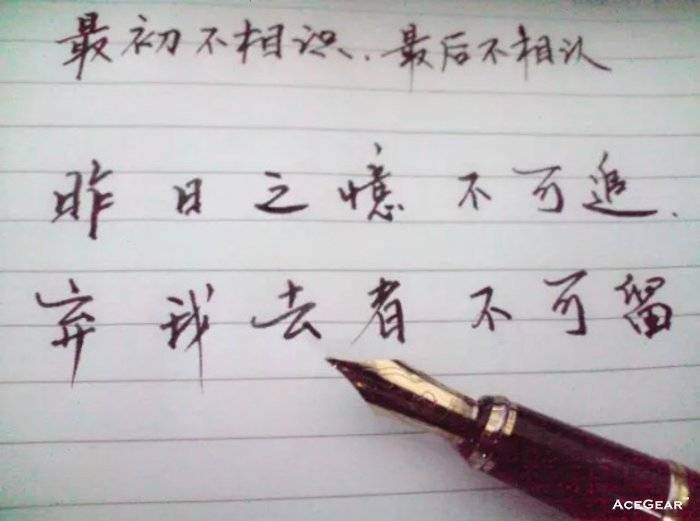 最初不相识.最后不相认
昨日之憶不可追.
弃我去者不可留
ACEGEAR